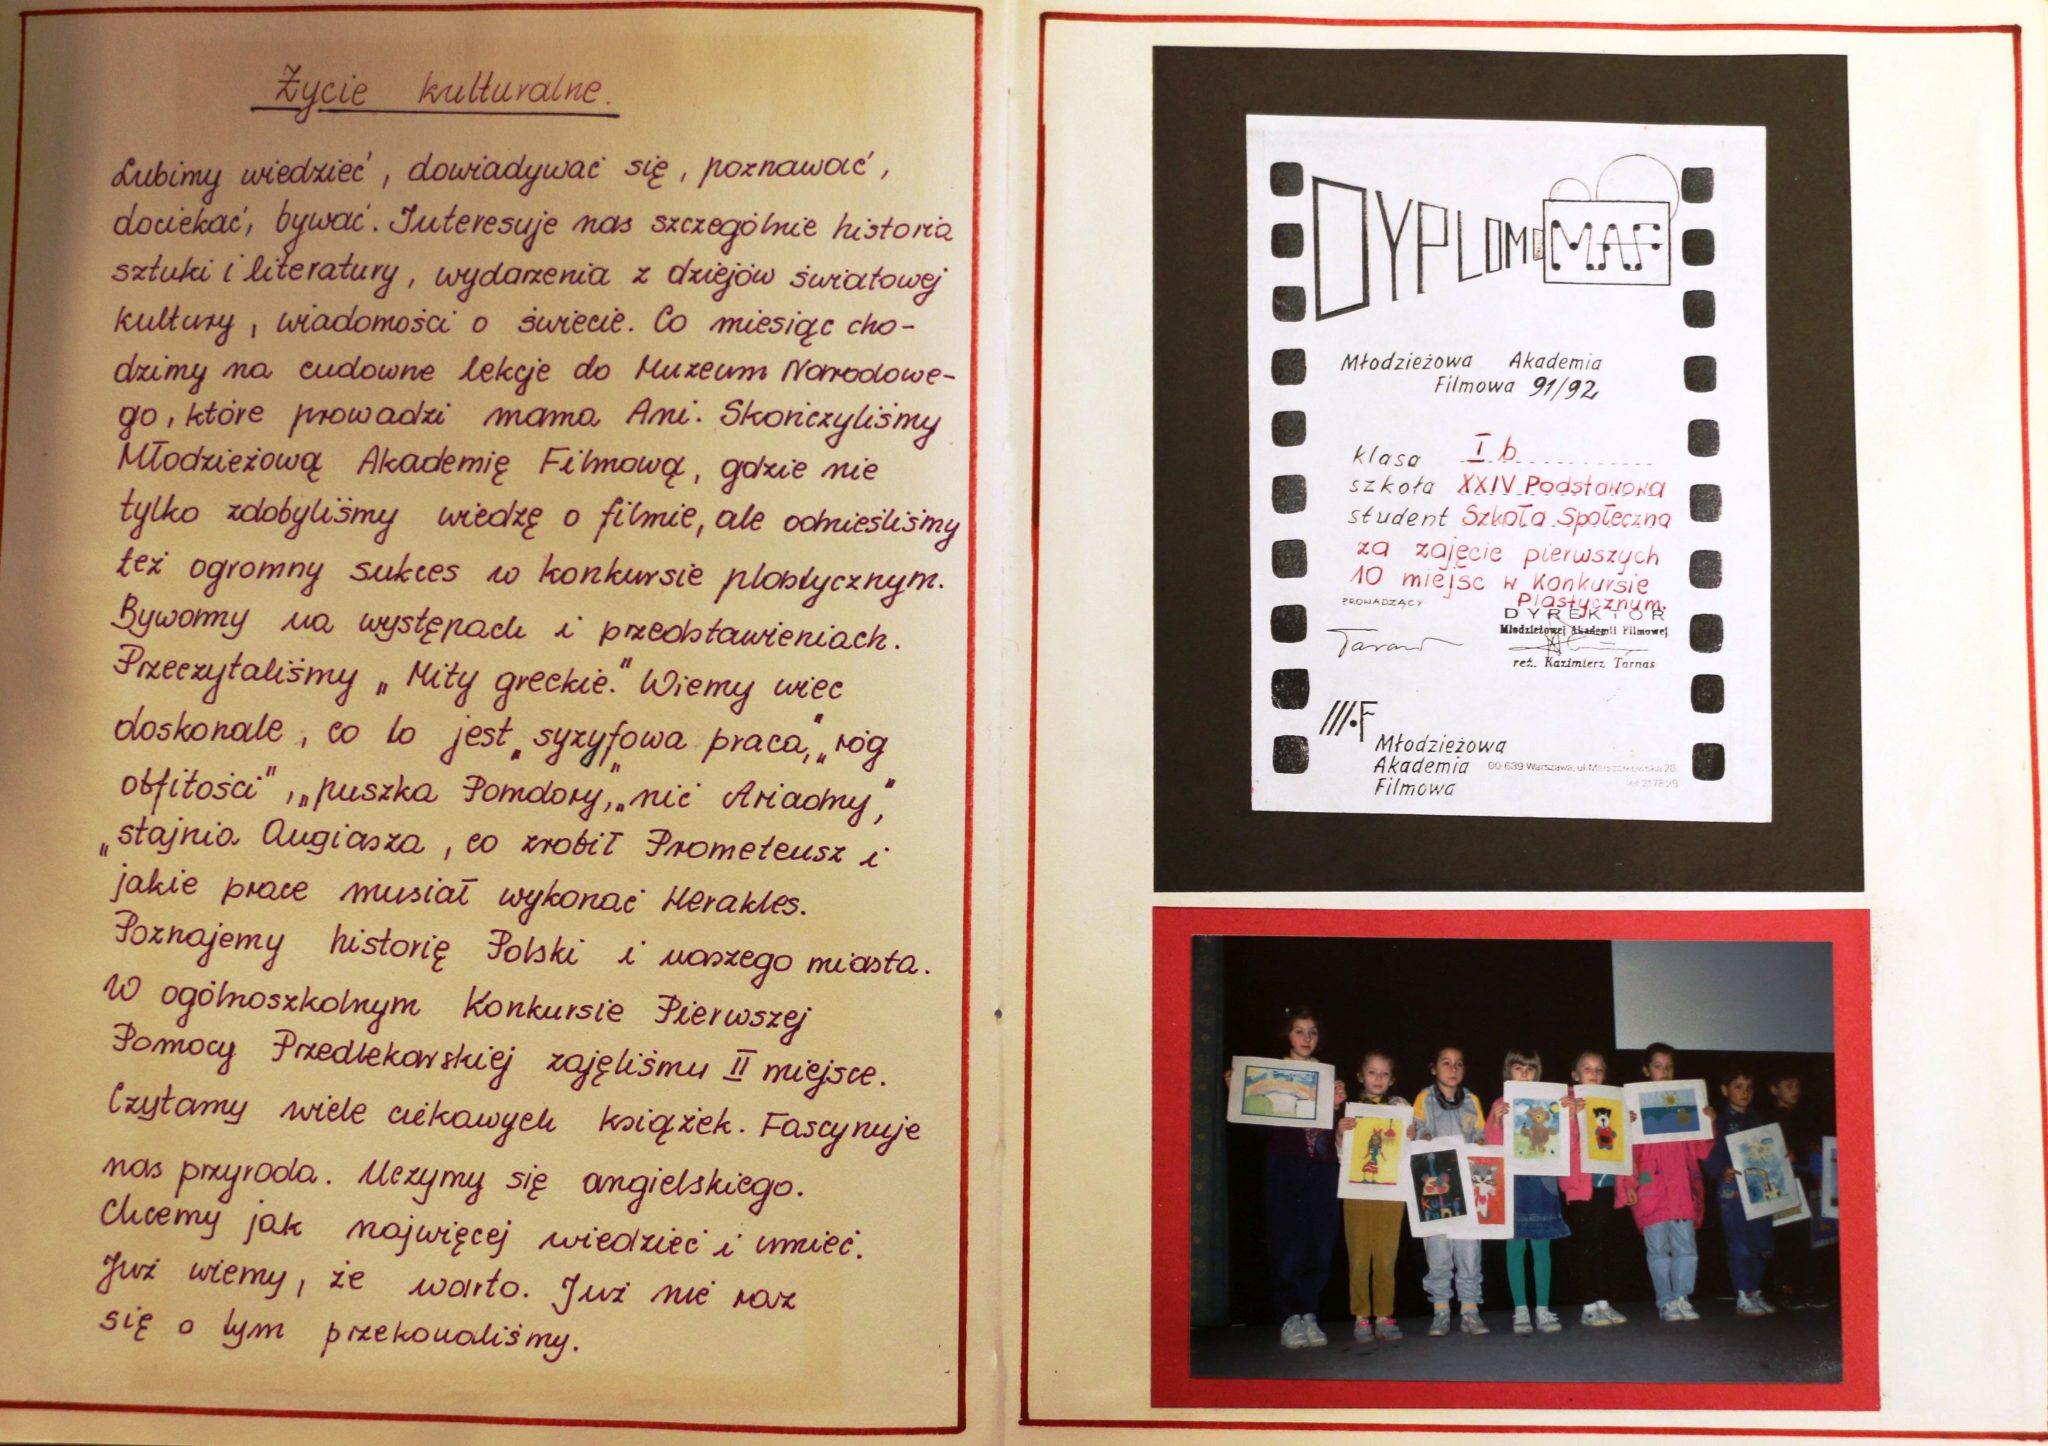 Życie kulturalne.
Lubimy wiedzieć, dowiadywać się, poznawać,
dociekać, bywać. Interesuje nas szczególnie historia
sztuki i literatury, wydarzenia z dziejów światowej
kultury, wiadomości o świecie. Co miesiąc cho-
dzimy na cudowne lekcje do Muzeum Narodowe-
go, które prowadzi mama Ani. Skończyliśmy
Młodzieżową Akademię Filmową, gdzie nie
tylko zdobyliśmy wiedzę o filmie, ale odnieśliśmy
też ogromny sukces w konkursie plastycznym.
Bywamy na występach i przedstawieniach.
Przeczytaliśmy „Mity greckie." Wiemy więc
doskonale, co to jest „syzyfowa praca", „róg
obfitości", „puszka Pandory", „nić Ariadny",
„stajnia Augiasza, co zrobił Prometeusz i
jakie prace musiał wykonać Herakles.
Poznajemy historię Polski i naszego miasta.
W ogólnoszkolnym Konkursie Pierwszej
Pomocy Przedlekarskiej zajęliśmy II miejsce.
Czytamy wiele ciekawych książek. Fascynuje
nas przyroda. Uczymy się angielskiego.
Chcemy jak najwięcej wiedzieć i umieć.
Już wiemy, że warto. Już nie raz
się o tym przekonaliśmy.
DYPLOM MAF
Młodzieżowa Akademia
Filmowa 91/92
klasa I b
szkoła XXIV Podstawowa
student Szkoła Społeczna
za zajęcie pierwszych
10 miejsc w Konkursie
Plastycznym.
PROWADZĄCY
DYREKTOR
Młodzieżowej Akademii Filmowej
reż. Kazimierz Tarnas
MAF
Młodzieżowa
Akademia
Filmowa
00-639 Warszawa, ul. Marszałkowska 28